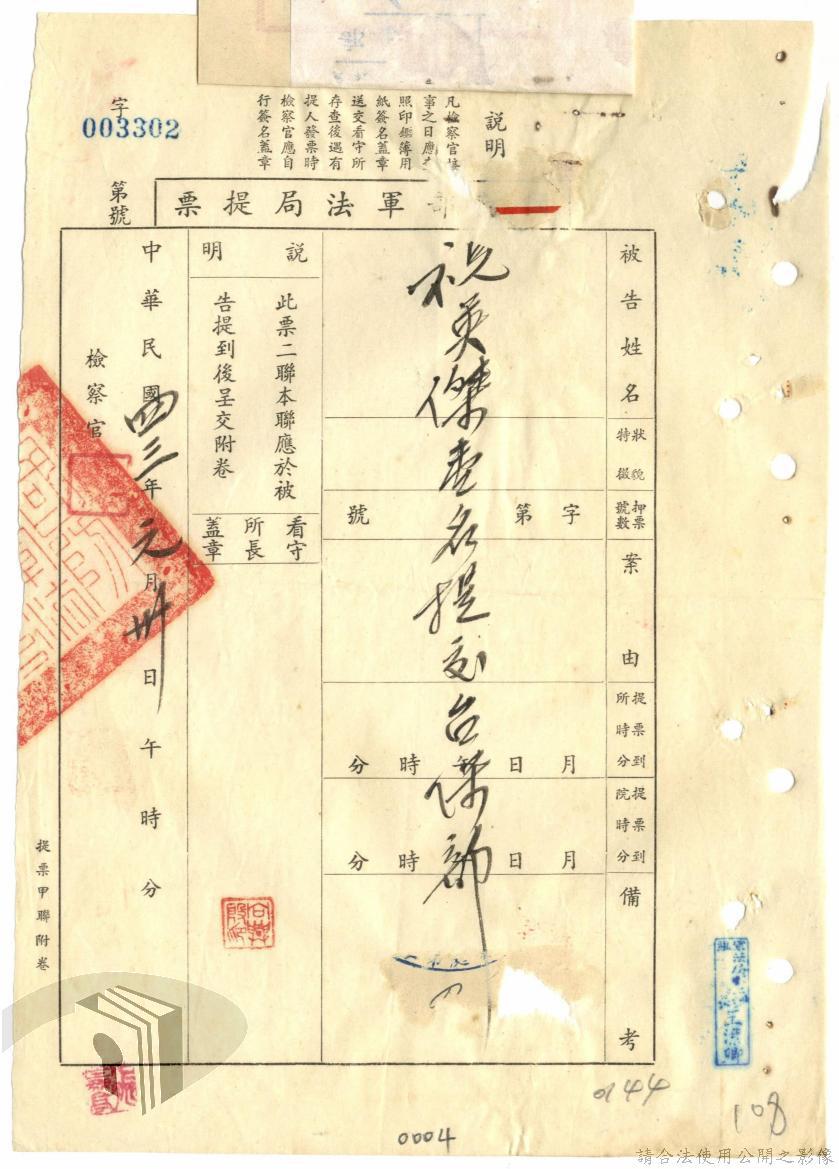 說明
凡檢察官接
事之日應
照印鑑簿用
紙簽名蓋章
送交看守所
存查後遇有
提人發票時
檢察官應自
行簽名蓋章
字
003302
第號
軍法局提票
被告姓名
特徵狀貌
押票號數
字第號
案由
提票到所時分
月日午時分
提票到院時分
月日午時分
備考
祝英傑壹名提交台保部
說明
此票二聯本聯應於被
告提到後呈交附卷
看守所長蓋章
中華民國四三年元月卅日午時分
檢察官
提票甲聯附卷
0144
108
0004
請合法使用公開之影像